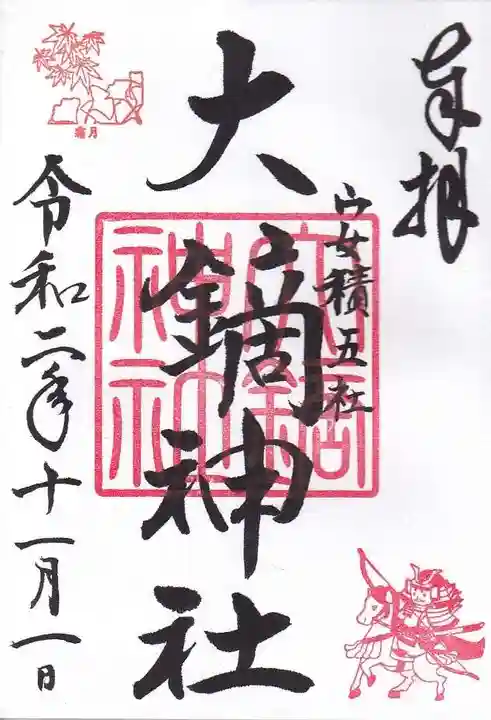 奉拝
安積五社
大鏑神社
令和二年十一月一日
霜月
大鏑神社